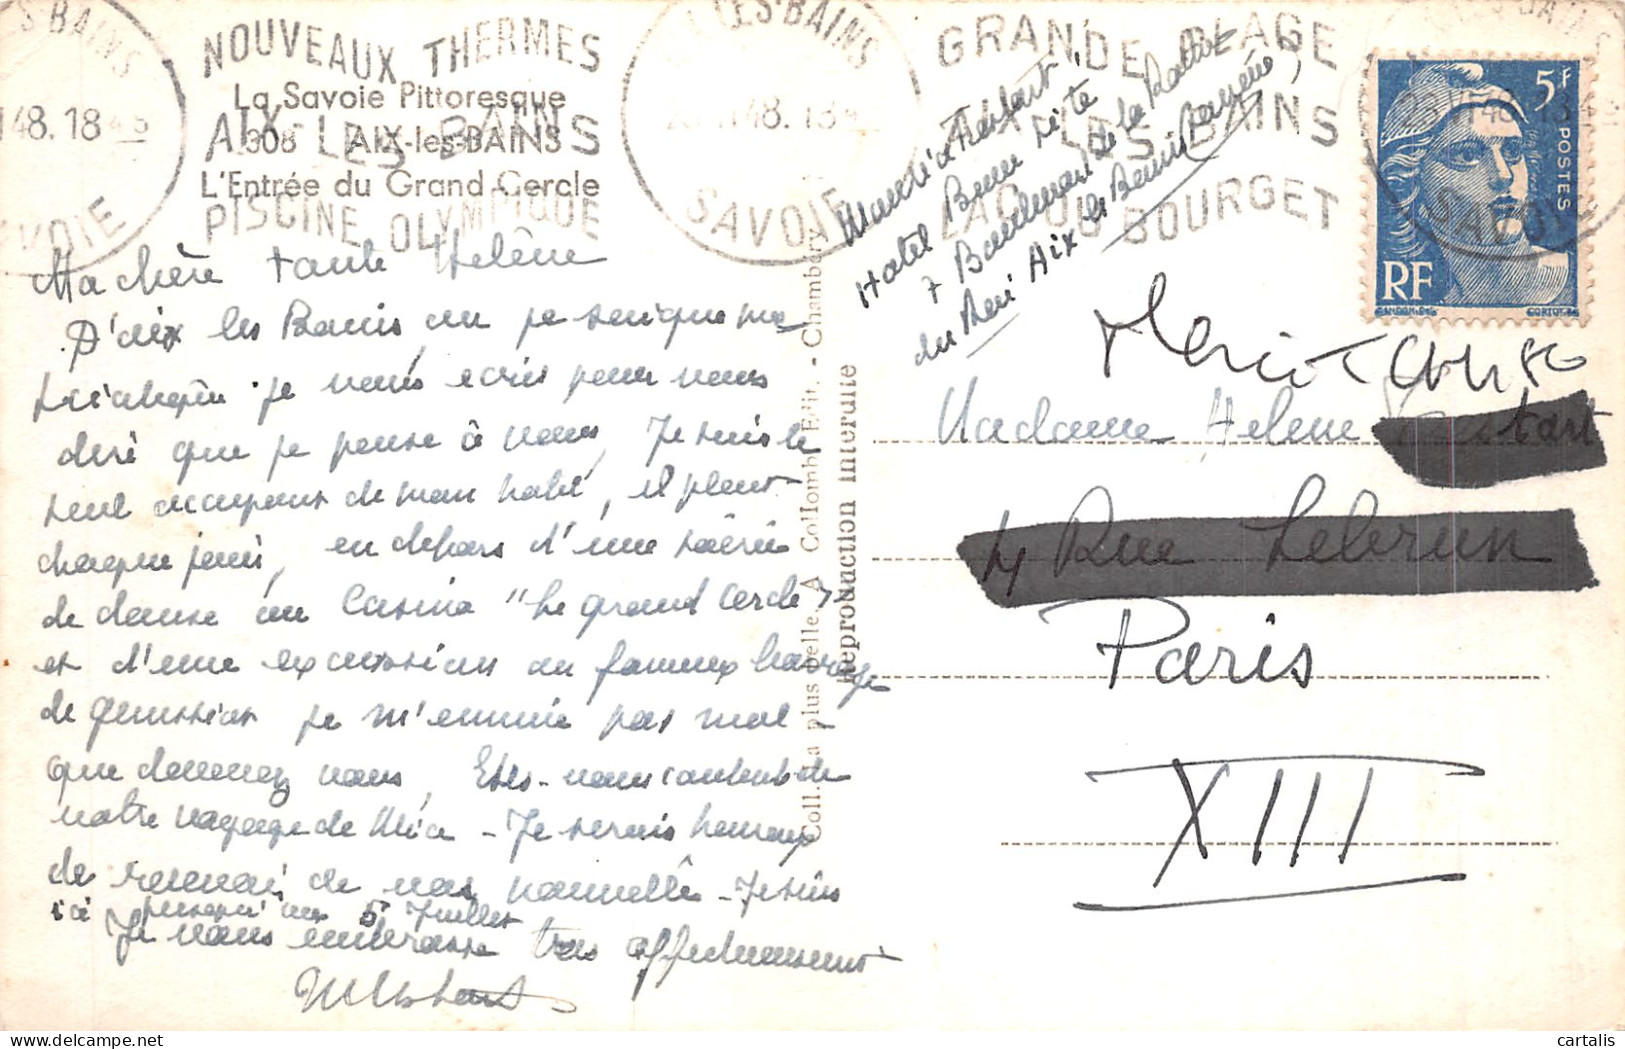 NOUVEAUX THERMES
AIX-LES-BAINS
PISCINE OLYMPIQUE
La Savoie Pittoresque
308 AIX-les-BAINS
L'Entrée du Grand Cercle
LES-BAINS
48. 18
SAVOIE
GRANDE PLAGE
AIX LES BAINS
LAC DU BOURGET
5F
POSTES
RF
GANDON DEL
CORTOT SC
Hotel
7 Boulevard de la
Aix les Bains
Ma chère tante Helène
D'aix les Bains ou je suis que ma
je vous ecris pour vous
dire que je pense à vous, Je suis le
seul occupant de mon hotel, il pleut
chaque jour, en dehors d'une soirée
de danse au Casino "Le grand Cercle"
et d'une excursion au fameux barrage
de genissiat je m'ennuie pas mal
que devenez vous, Etes-vous contents de
votre voyage de Nice - Je serais heureux
de recevoir de vos nouvelles - Je suis
ici jusqu'au 5 Juillet
Je vous embrasse tres affectueusement
Coll. La plus belle. A. Collomb Edit. - Chambéry
Reproduction interdite
Madame Helene
4 Rue Lebrun
Paris
XIII
cartalis
delcampe.net